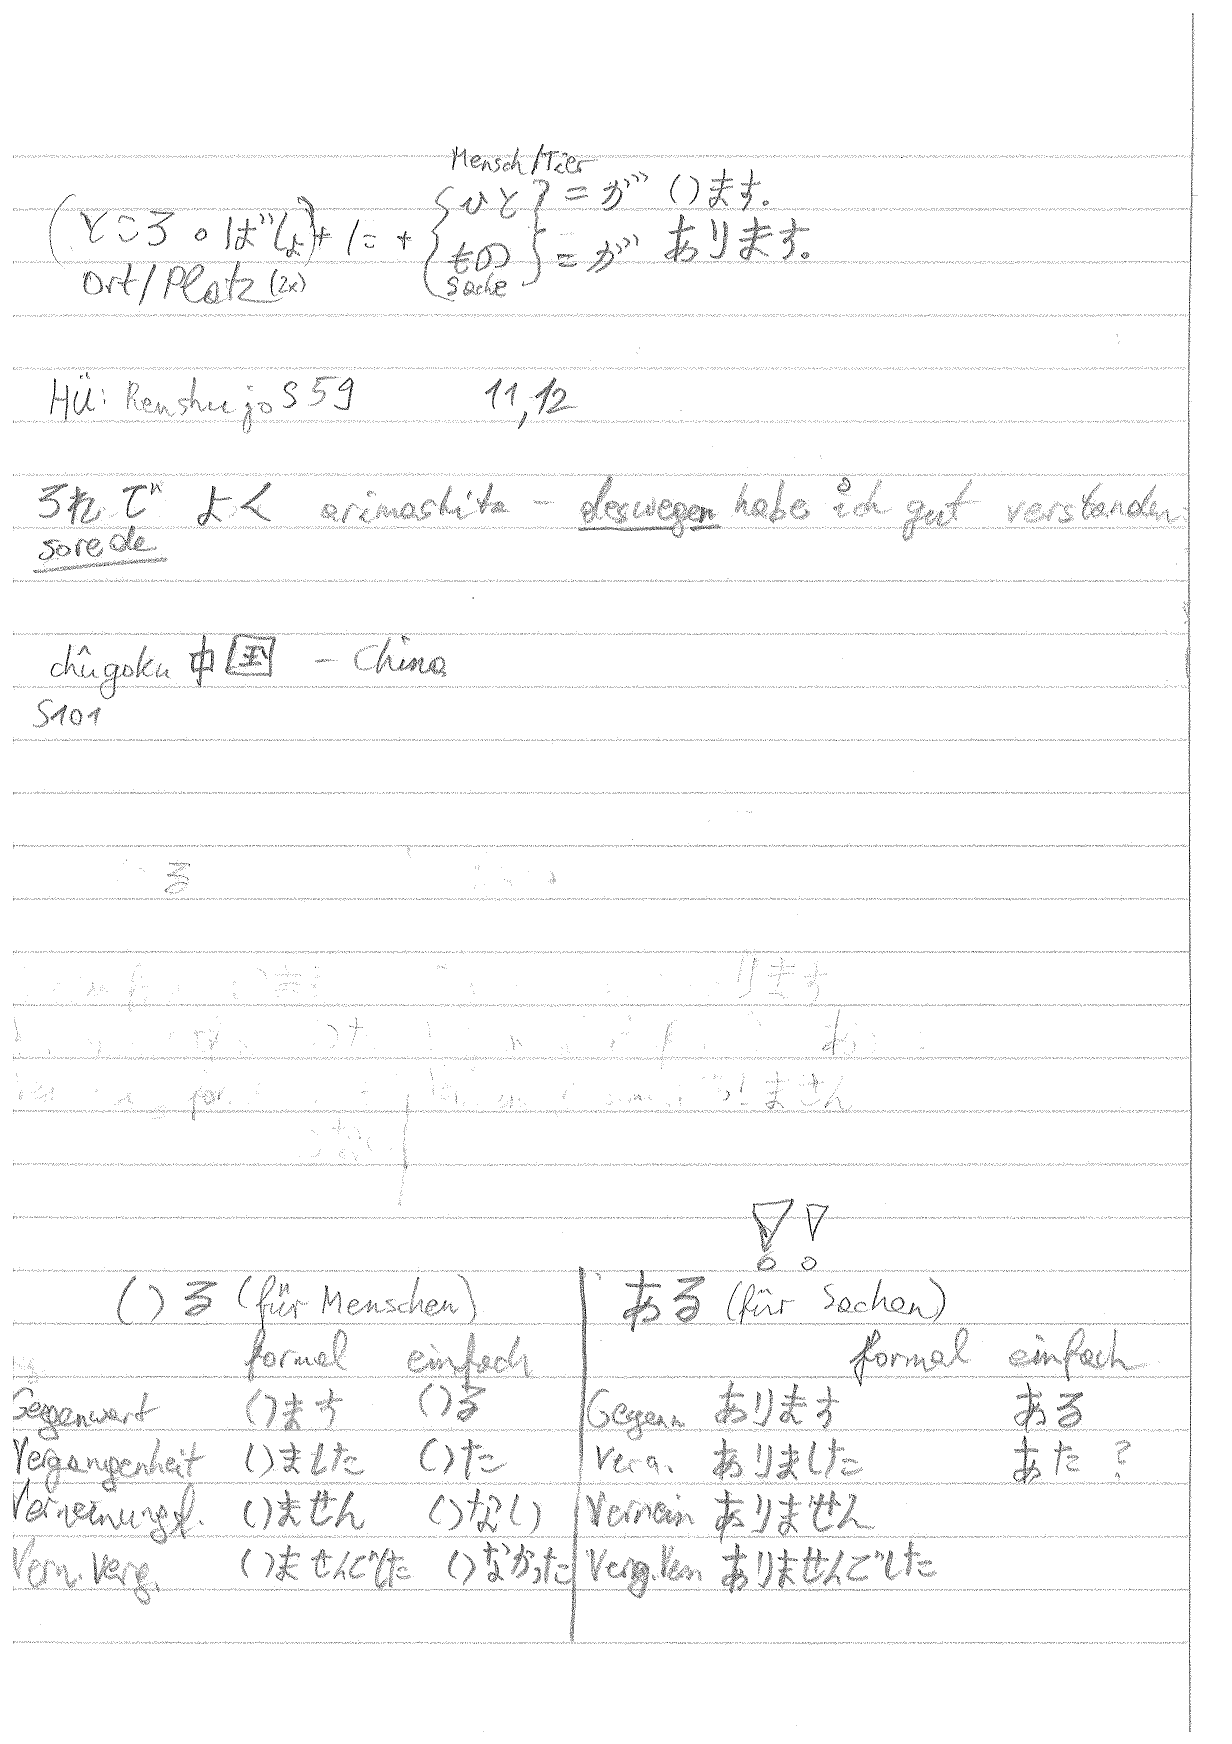 Mensch/Tier
{ひと} = が います。
(ところ。ばしょ) + に +
{もの} = が あります。
Ort/Platz (2x)
Sache
HÜ: Renshujo S59 11,12
それで よく arimashita – deswegen habe ich gut verstanden
sorede
chûgoku 中国 – China
S101
る
ります
ません
いる (für Menschen)
ある (für Sachen)
formal einfach
formal einfach
Gegenwart います いる
Gegenw. あります ある
Vergangenheit いました いた
Verg. ありました あた ?
Verneinungsf. いません いない
Vernein ありません
Vern. Verg. いませんでした いなかった
Verg. Vern ありませんでした